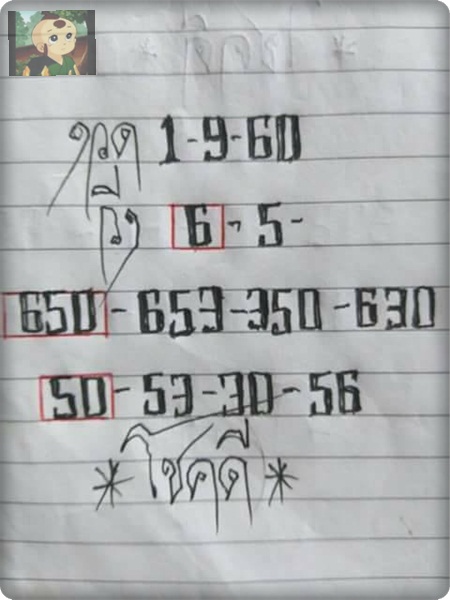 งวด 1-9-60
6 - 5 -
650 - 653 - 350 - 630
50 - 53 - 30 - 56
* โชคดี *